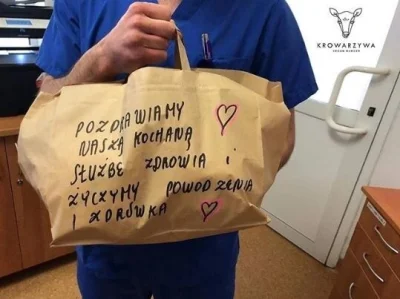 KROWARZYWA
VEGAN BURGER
POZDRAWIAMY
NASZĄ KOCHANĄ
SŁUŻBĘ ZDROWIA i
ŻYCZYMY POWODZENIA
I ZDRÓWKA